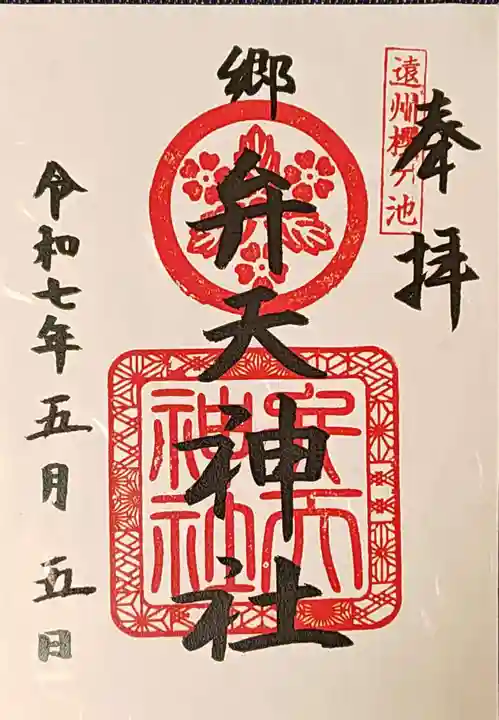 奉拝
遠州櫻ヶ池
郷
弁天神社
弁天
神社
令和七年五月五日